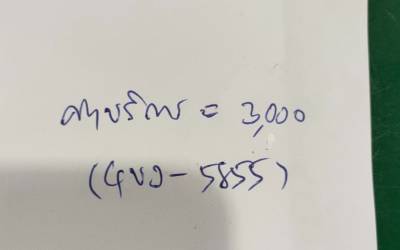 ค่าบริการ = 3,000
(4ขว-5855)